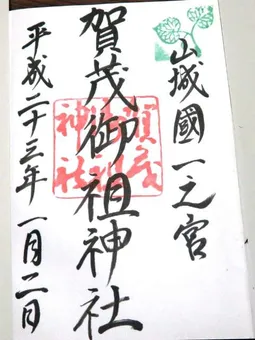 山城國一之宮
賀茂御祖神社
賀茂御祖神社
平成二十三年一月二日